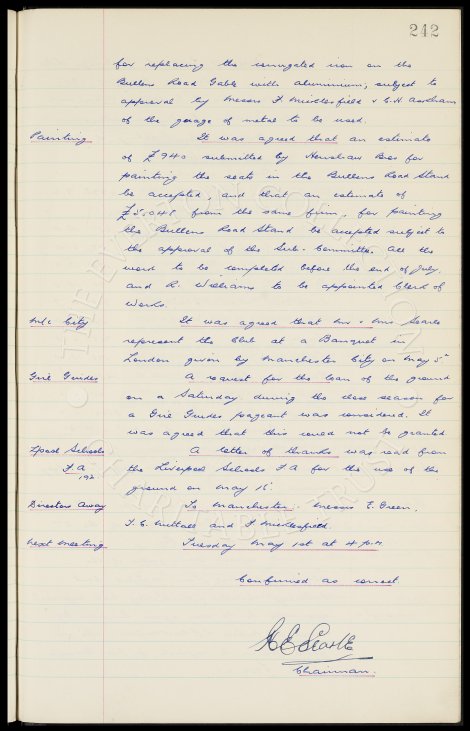 242
for replacing the corrugated iron on the
Bullens Road Gable with aluminium, subject to
approval by Messrs F. Micklesfield & C.H. Askham
of the gauge of metal to be used.
Painting It was agreed that an estimate
of £940 submitted by Henshaw Bros for
painting the seats in the Bullens Road Stand
be accepted, and that an estimate of
£5,048 from the same firm, for painting
the Bullens Road Stand be accepted subject to
the approval of the Sub-Committee. All the
work to be completed before the end of July,
and R. Williams to be appointed Clerk of
Works.
M/c City It was agreed that Mr & Mrs Searle
represent the Club at a Banquet in
London given by Manchester City on May 5th
Girl Guides A request for the loan of the ground
on a Saturday during the close season for
a Girl Guides pageant was considered. It
was agreed that this could not be granted
L'pool Schools A letter of thanks was read from
F.A. the Liverpool Schools F.A for the use of the
ground on May 16.
Directors Away To Manchester: Messrs E. Green,
T.C. Nuttall and F. Micklesfield.
Next Meeting Tuesday May 1st at 4 p.m.
Confirmed as correct
H E Searle
Chairman.
© THE EVERTON COLLECTION
CHARITABLE TRUST